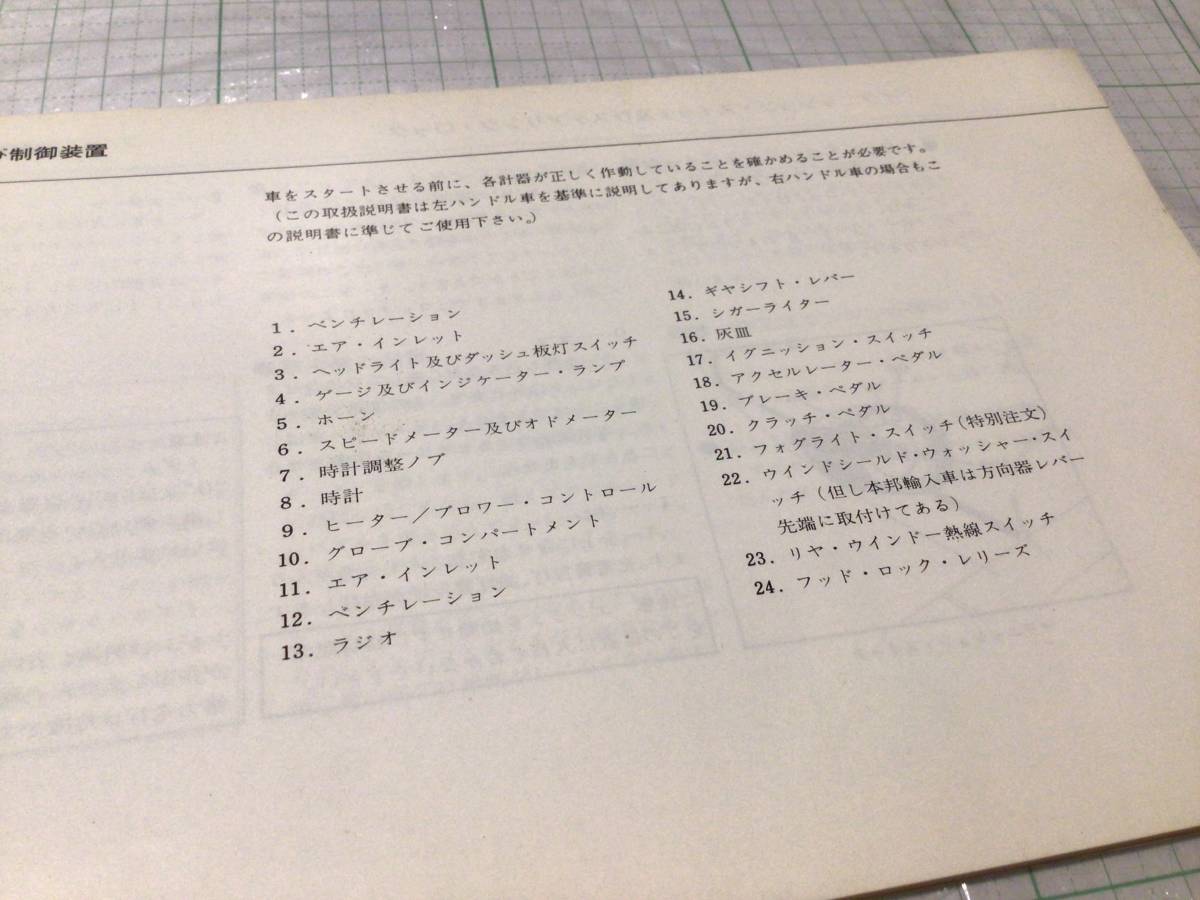 び制御装置
車をスタートさせる前に、各計器が正しく作動していることを確かめることが必要です。
（この取扱説明書は左ハンドル車を基準に説明してありますが、右ハンドル車の場合もこ
の説明書に準じてご使用下さい。）
1．ベンチレーション
2．エア・インレット
3．ヘッドライト及びダッシュ板灯スイッチ
4．ゲージ及びインジケーター・ランプ
5．ホーン
6．スピードメーター及びオドメーター
7．時計調整ノブ
8．時計
9．ヒーター／ブロワー・コントロール
10．グローブ・コンパートメント
11．エア・インレット
12．ベンチレーション
13．ラジオ
14．ギヤシフト・レバー
15．シガーライター
16．灰皿
17．イグニッション・スイッチ
18．アクセルレーター・ペダル
19．ブレーキ・ペダル
20．クラッチ・ペダル
21．フォグライト・スイッチ（特別注文）
22．ウインドシールド・ウォッシャー・スイ
ッチ（但し本邦輸入車は方向器レバー
先端に取付けてある）
23．リヤ・ウインドー熱線スイッチ
24．フッド・ロック・レリーズ